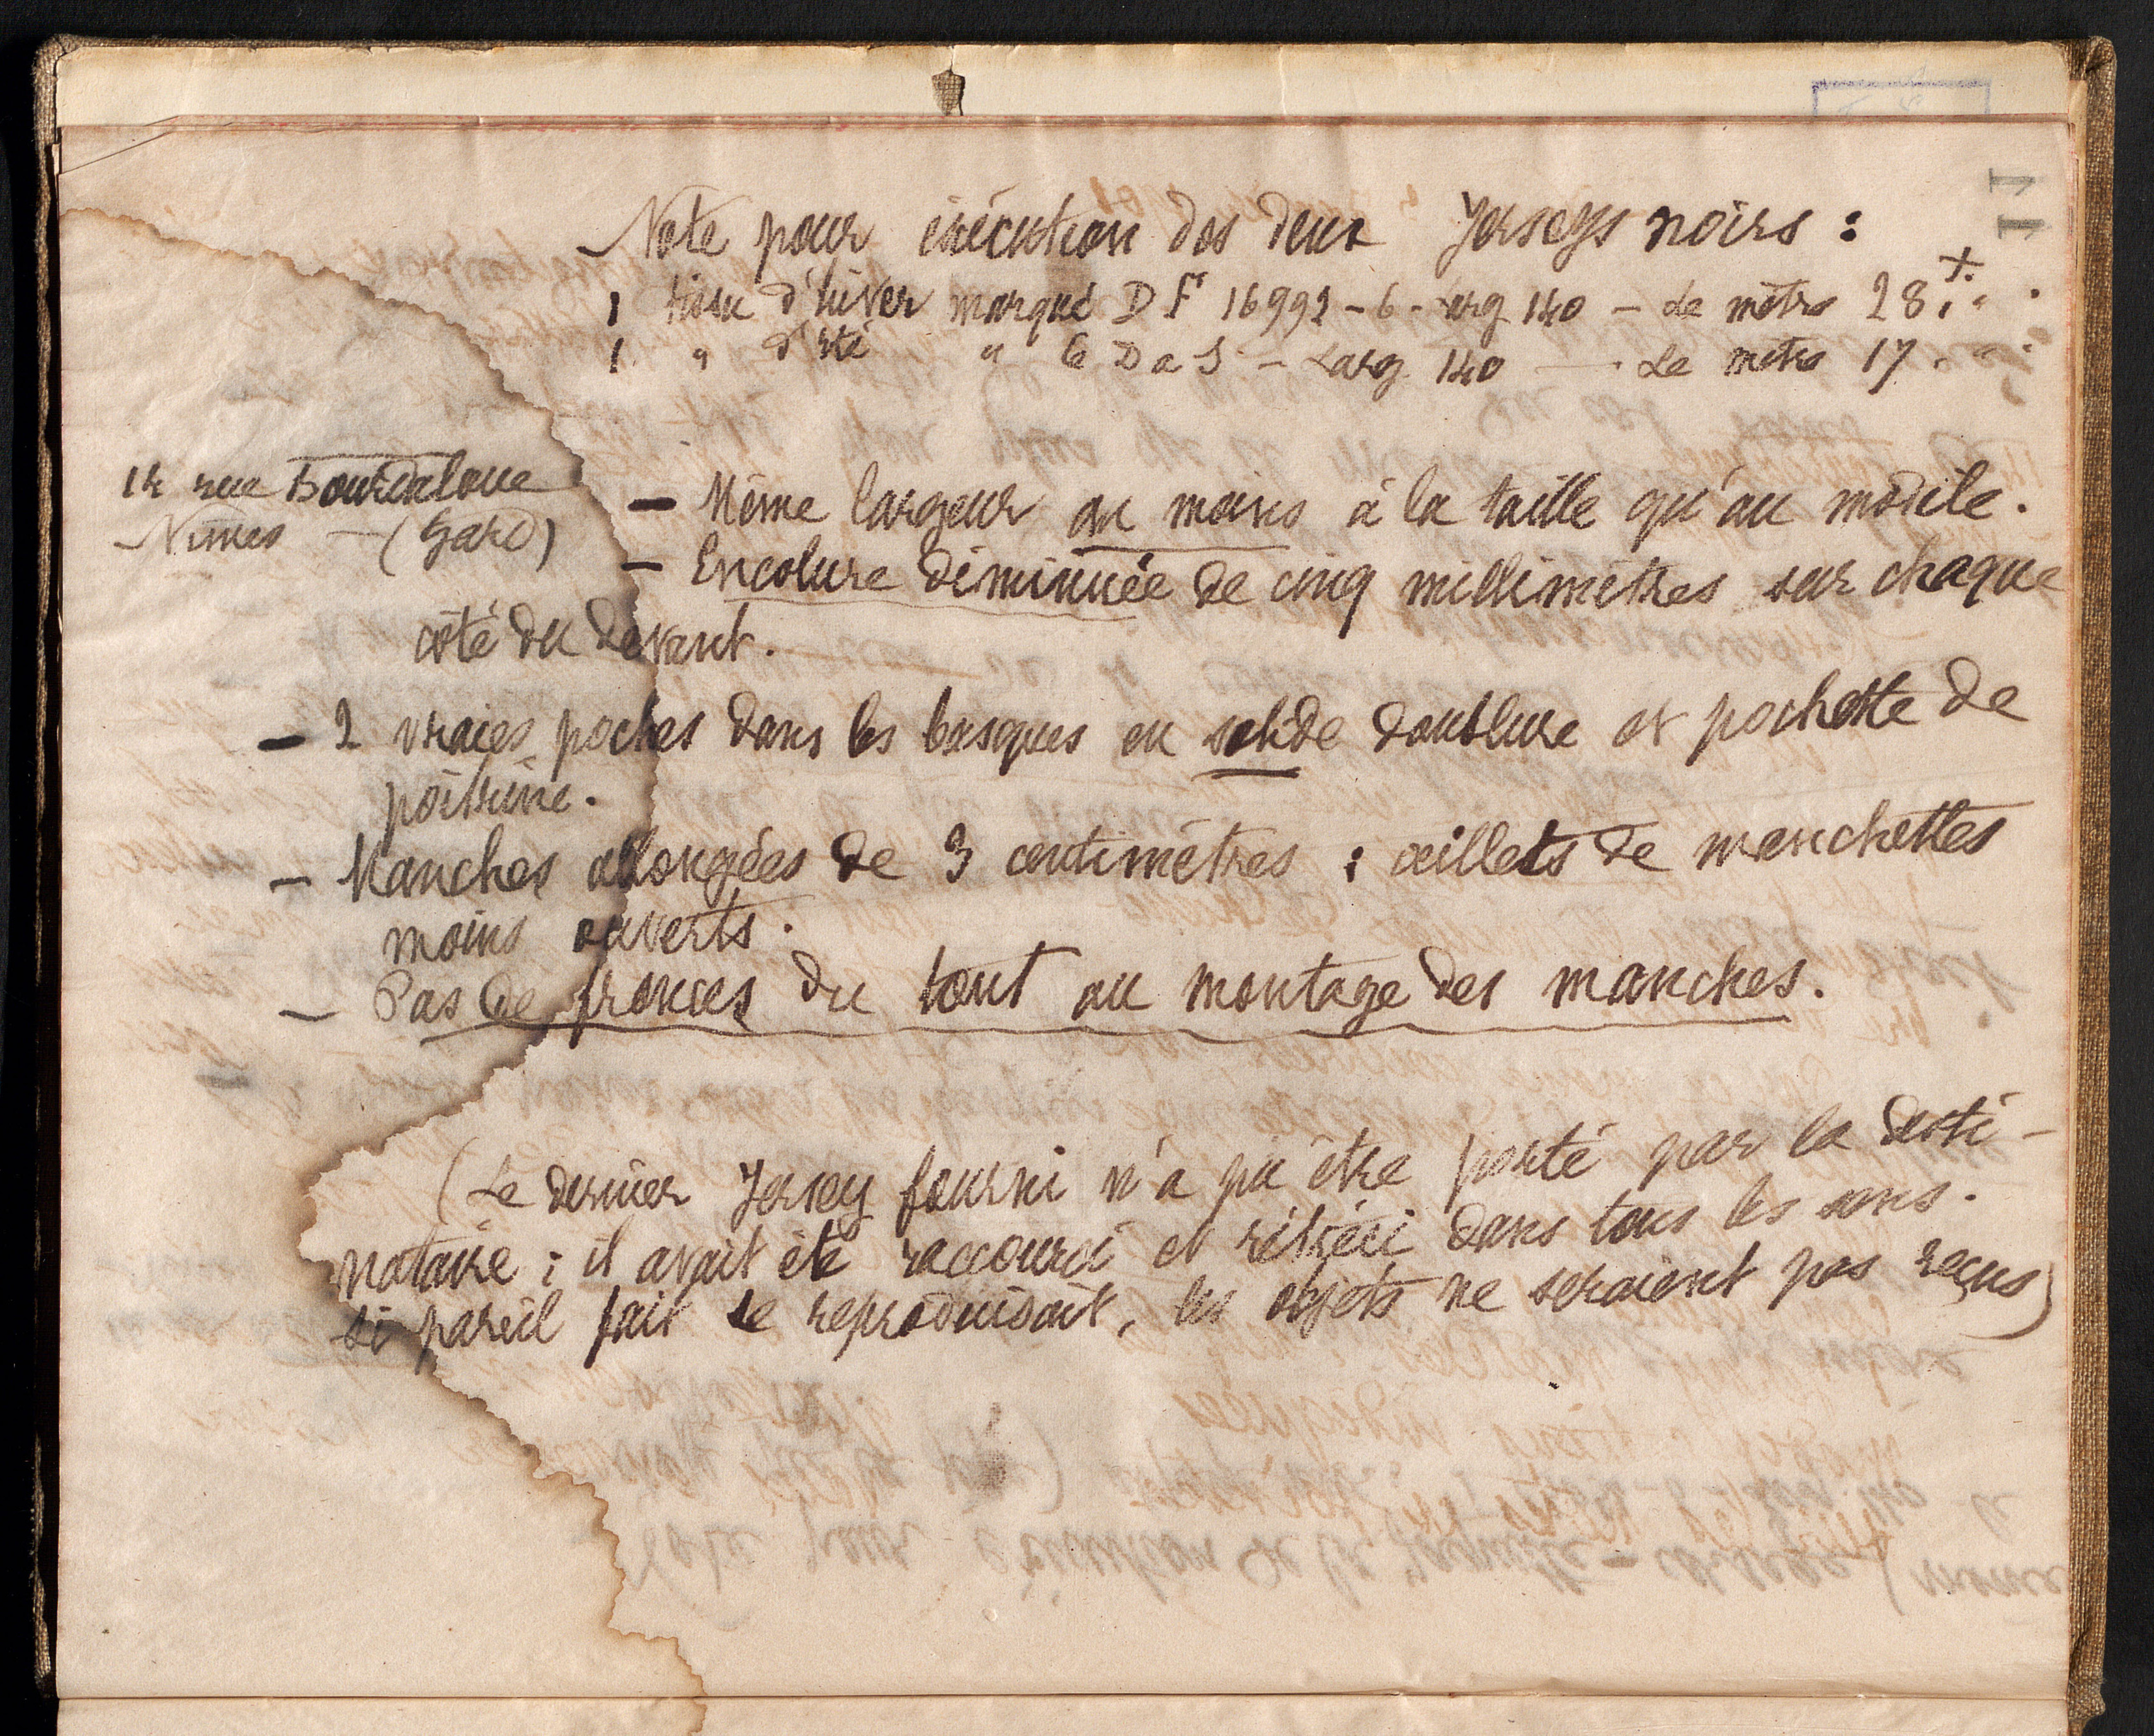 Note pour exécution des deux Jerseys noirs :
1 tissu d'hiver marqué D F 16992 - 6 - Larg 140 - Le mètre 28 +
1. " d'été " 6 D a S - Larg. 140 — Le mètre 17 . " .
12 rue Bourdaloue
Nîmes - (Gard)
- Même largeur au moins à la taille qu'au modèle.
- Encolure diminuée de cinq millimètres sur chaque
côté du devant.
- 2 vraies poches dans les basques en solide doublure et pochette de
poitrine.
- Manches allongées de 3 centimètres : œillets de manchettes
moins ouverts.
- Pas de fronces du tout au montage des manches.
(Le dernier Jersey fourni n'a pu être porté par la desti-
nataire ; il avait été raccourci et rétréci dans tous les sens.
si pareil fait se reproduisait, les objets ne seraient pas reçus)